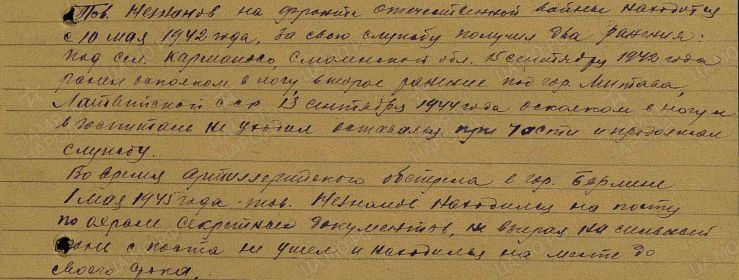 Тов. Незнамов на фронте отечественной войны находится
с 10 мая 1942 года, за свою службу получил два ранения:
под сел. Карманово, Смоленской обл. 15 сентября 1942 года
ранен осколком в ногу, второе ранение под гор. Митава,
Латвийской сср. 13 сентября 1944 года осколком в ногу и
в госпиталь не уходил оставался при части и продолжал
службу.
Во время артиллерийского обстрела в гор. Берлине
1 мая 1945 года тов. Незнамов находился на посту
по охране секретных документов, не взирая на сильный
с поста не ушел и находился на месте до
своего срока.